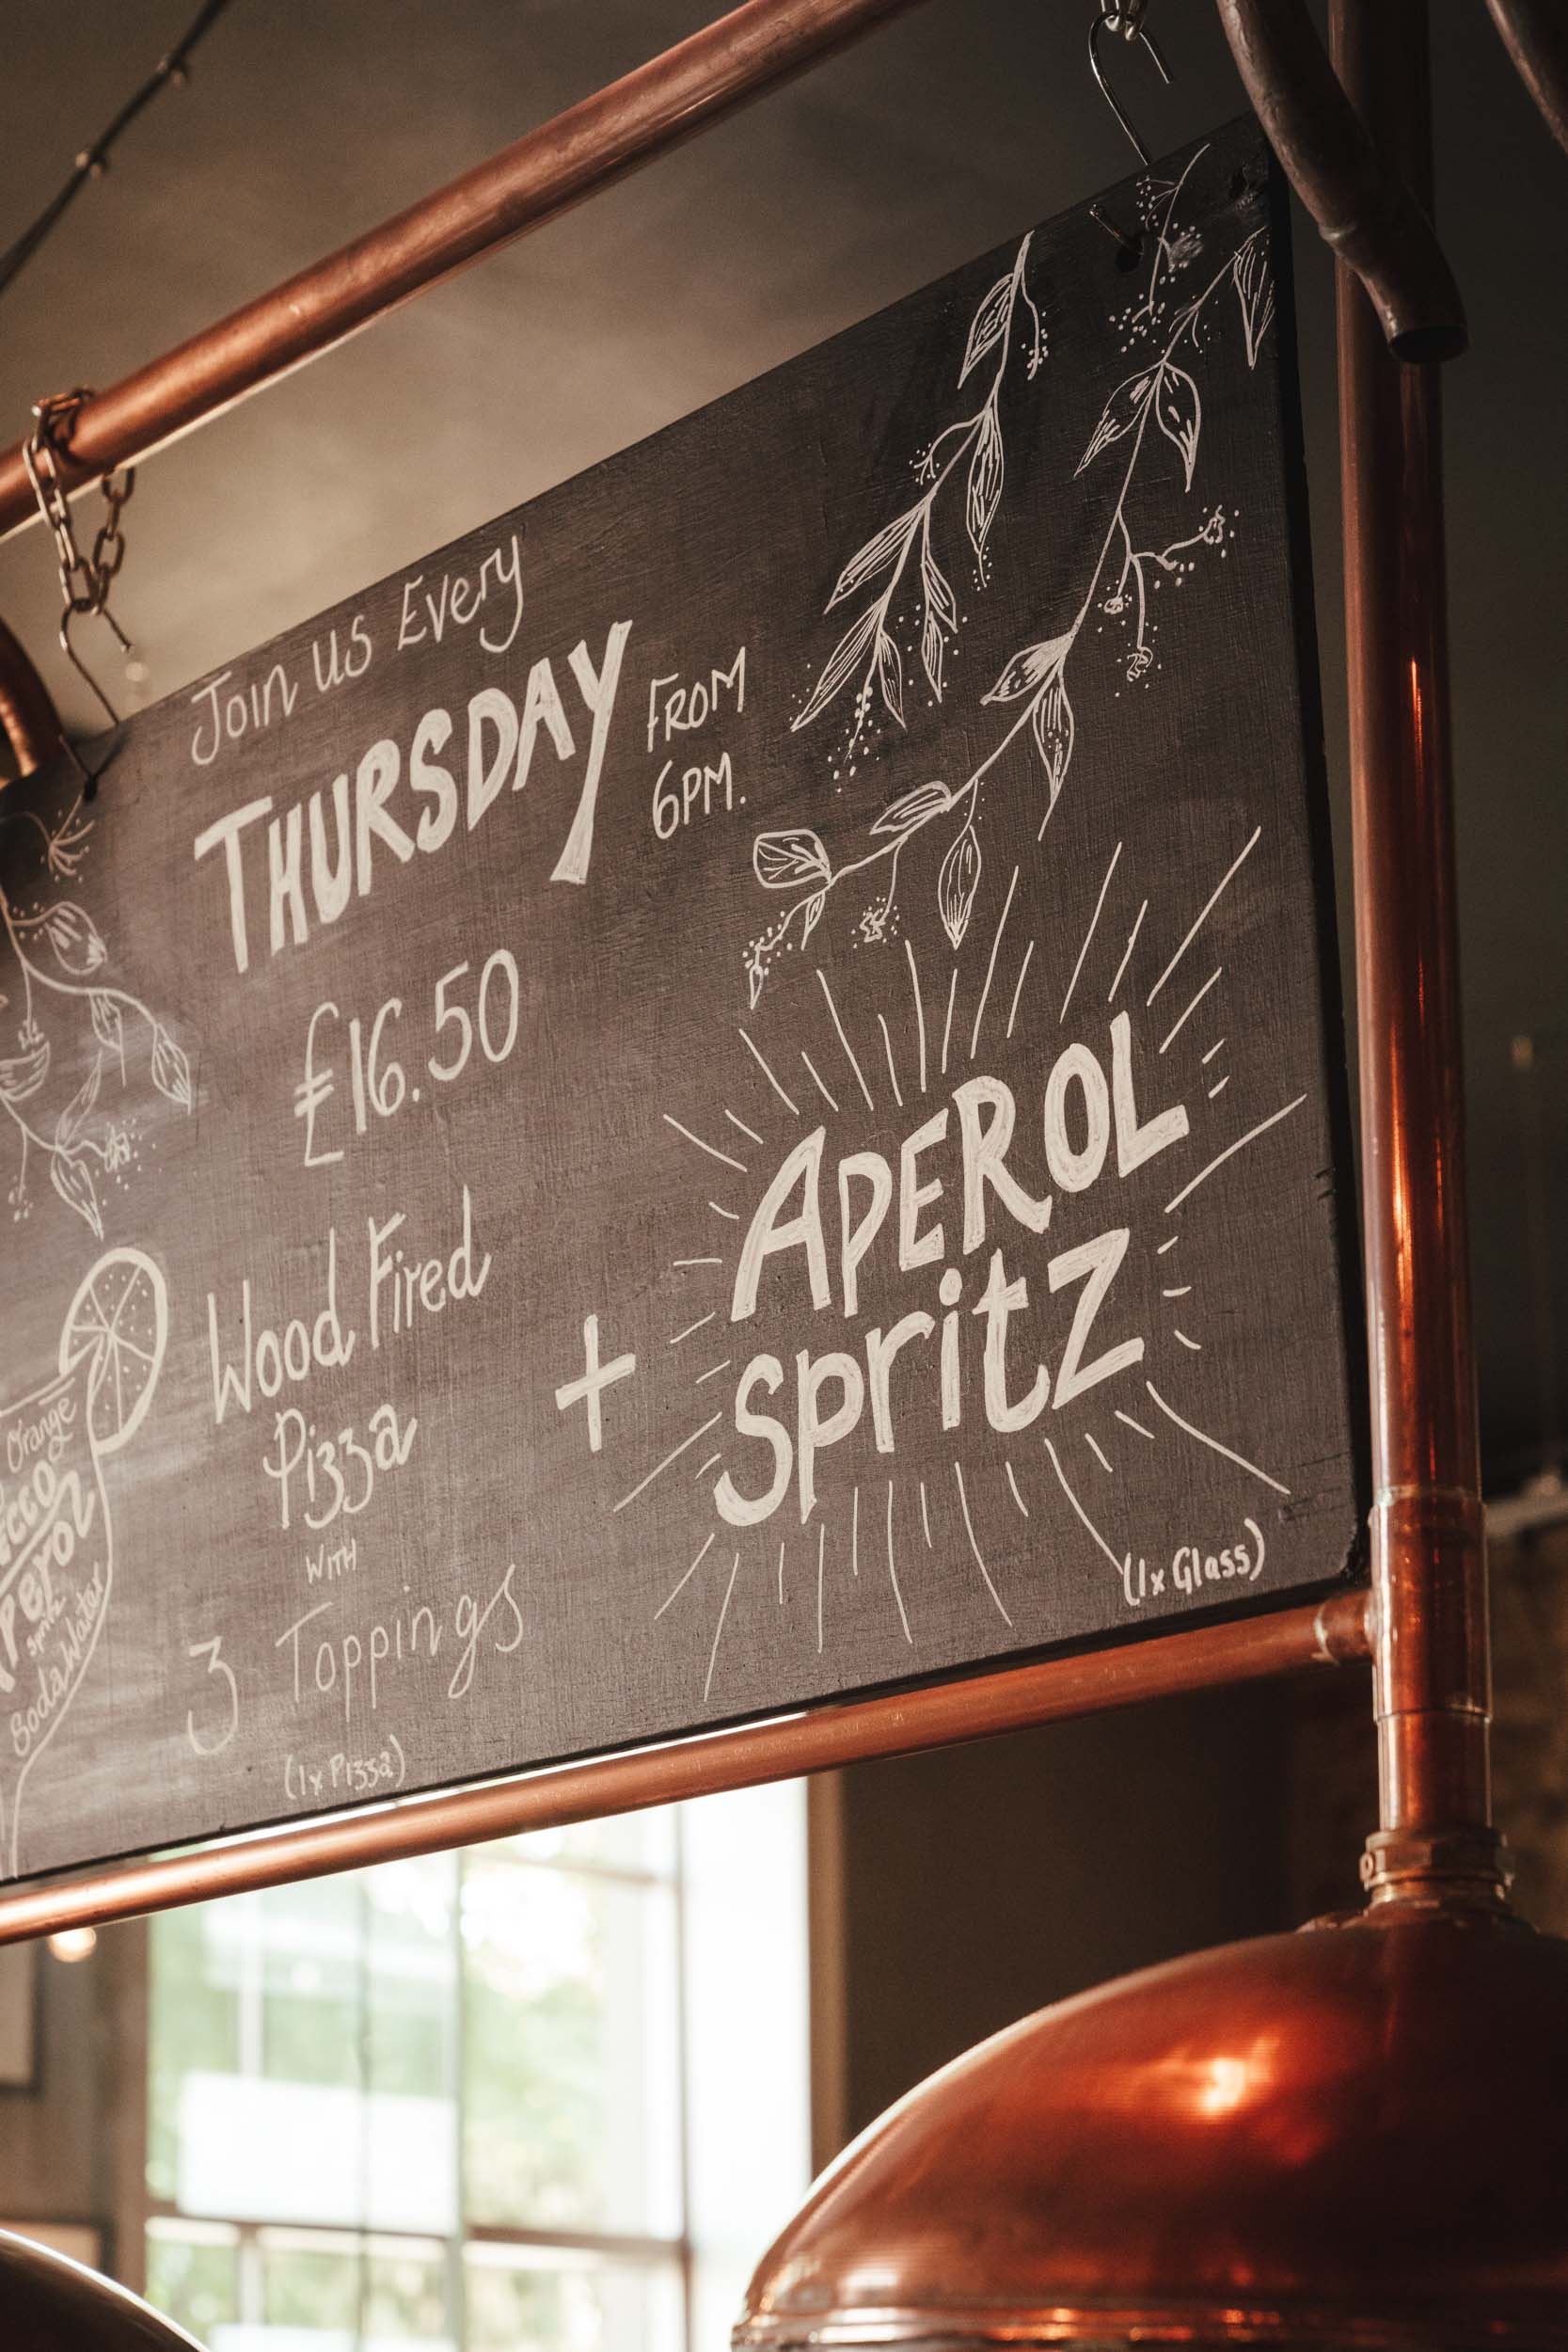 Join us Every
THURSDAY
FROM
6PM.
£16.50
Wood Fired
Pizza
WITH
3 Toppings
(1x Pizza)
+
APEROL
spritz
(1x Glass)
Orange
Soda Water